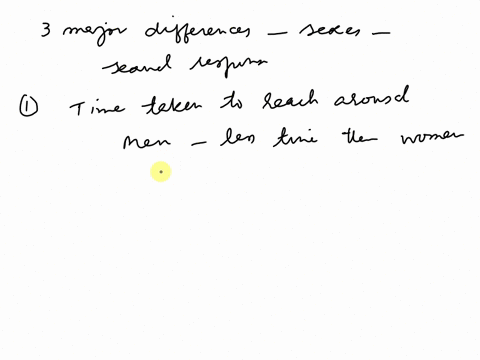 3 major differences — sexes —
sexual response
① Time taken to reach arousal
Men — less time than women